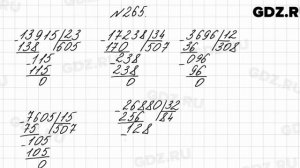 GDZ.RU
№265.
-13915|23 -17238|34 -3696|12
138 |605 170 |507 36 |308
-115 -238 -096
115 238 96
0 0 0
-7605|15 -26880|32
75 |507 256 |84
-105 -128
105
0
GDZ.RU